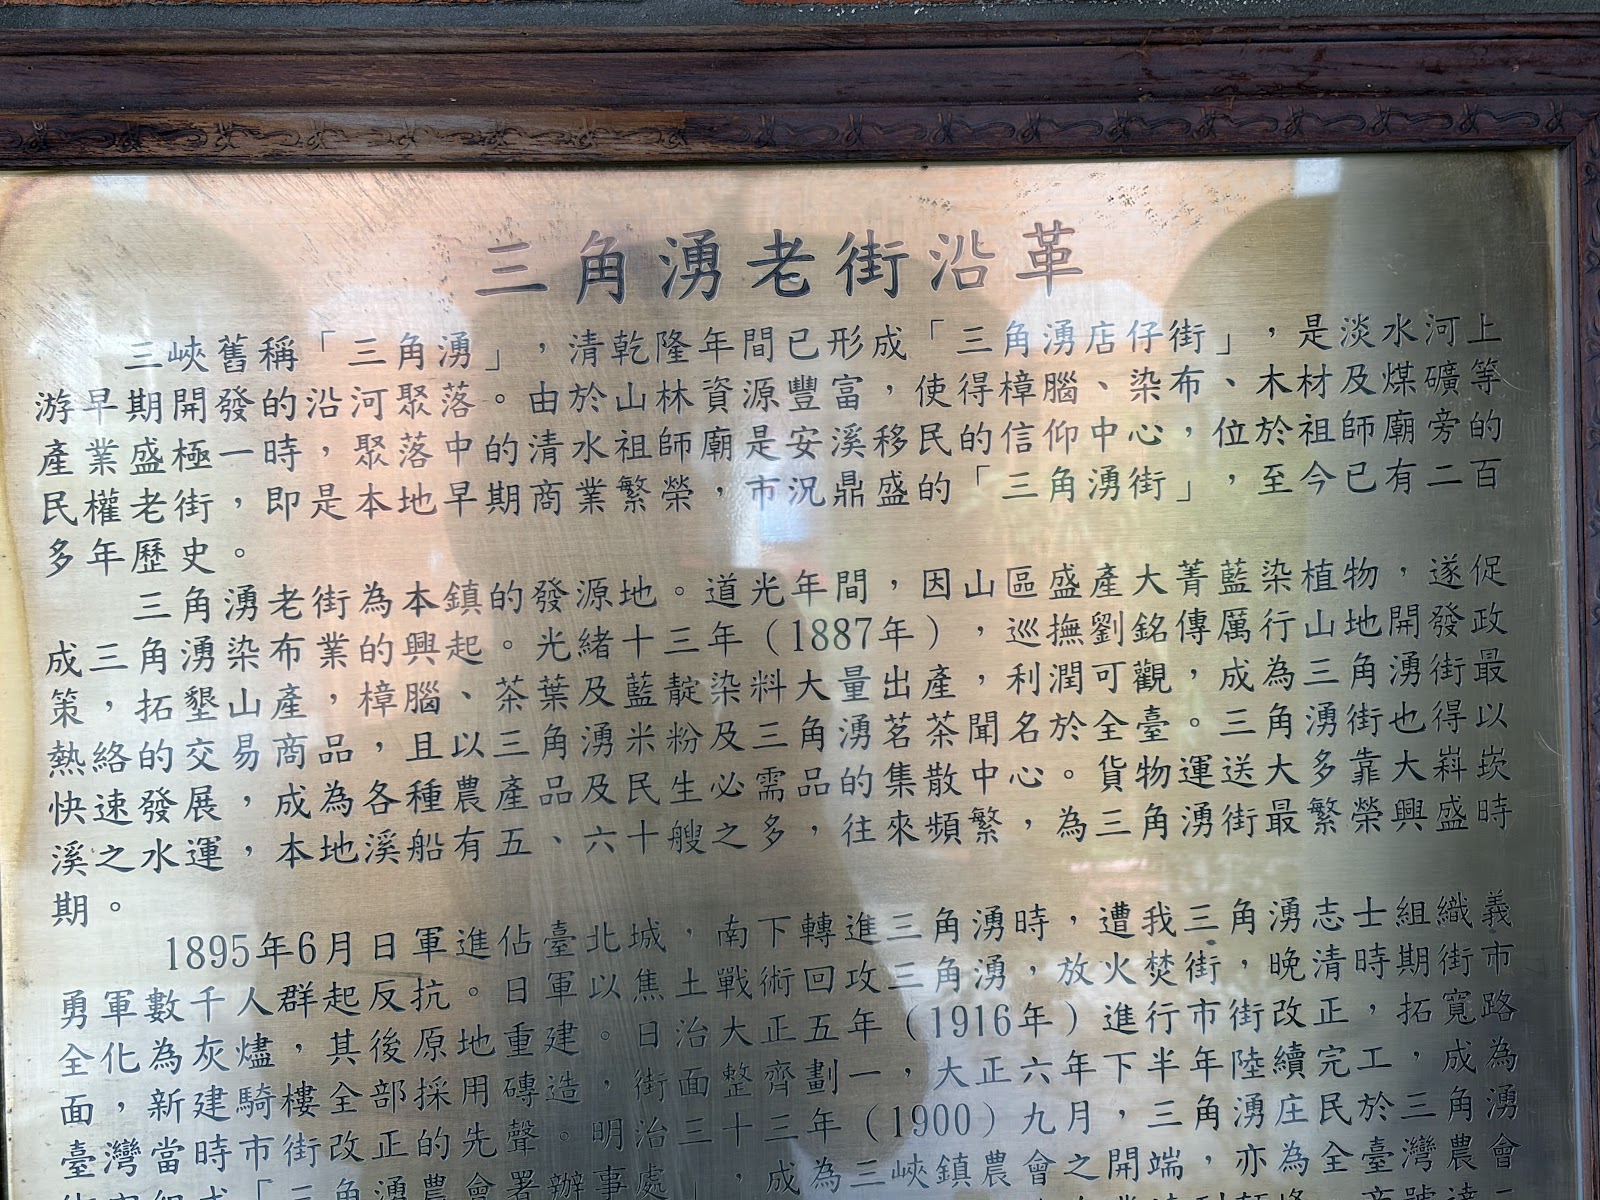 三角湧老街沿革
三峽舊稱「三角湧」，清乾隆年間已形成「三角湧店仔街」，是淡水河上
游早期開發的沿河聚落。由於山林資源豐富，使得樟腦、染布、木材及煤礦等
產業盛極一時，聚落中的清水祖師廟是安溪移民的信仰中心，位於祖師廟旁的
民權老街，即是本地早期商業繁榮，市況鼎盛的「三角湧街」，至今已有二百
多年歷史。
三角湧老街為本鎮的發源地。道光年間，因山區盛產大菁藍染植物，遂促
成三角湧染布業的興起。光緒十三年（1887年），巡撫劉銘傳厲行山地開發政
策，拓墾山產，樟腦、茶葉及藍靛染料大量出產，利潤可觀，成為三角湧街最
熱絡的交易商品，且以三角湧米粉及三角湧茗茶聞名於全臺。三角湧街也得以
快速發展，成為各種農產品及民生必需品的集散中心。貨物運送大多靠大嵙崁
溪之水運，本地溪船有五、六十艘之多，往來頻繁，為三角湧街最繁榮興盛時
期。
1895年6月日軍進佔臺北城，南下轉進三角湧時，遭我三角湧志士組織義
勇軍數千人群起反抗。日軍以焦土戰術回攻三角湧，放火焚街，晚清時期街市
全化為灰燼，其後原地重建。日治大正五年（1916年）進行市街改正，拓寬路
面，新建騎樓全部採用磚造，街面整齊劃一，大正六年下半年陸續完工，成為
臺灣當時市街改正的先聲。明治三十三年（1900）九月，三角湧庄民於三角湧
「三角湧農會署辦事處」，成為三峽鎮農會之開端，亦為全臺灣農會